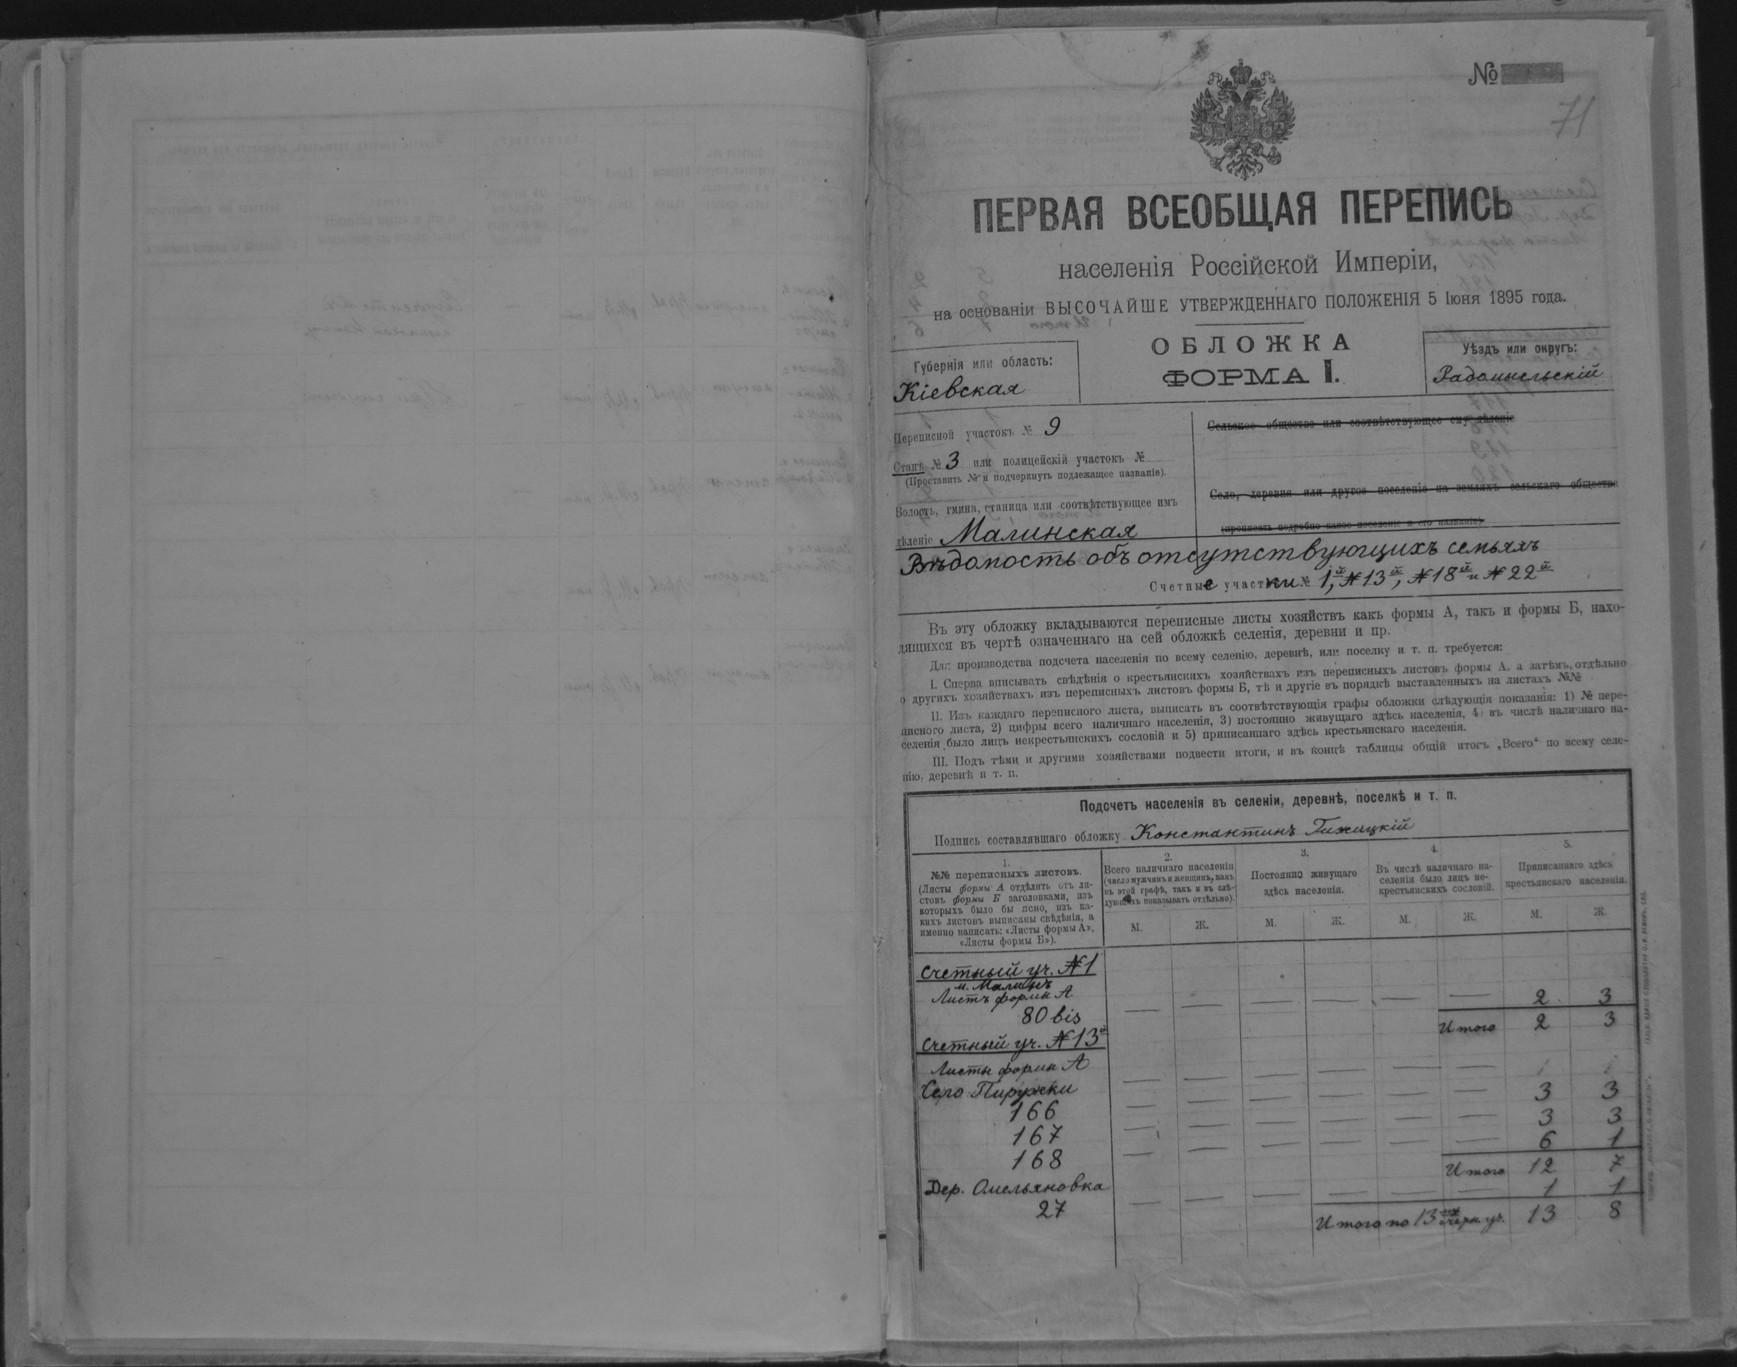 №
71
ПЕРВАЯ ВСЕОБЩАЯ ПЕРЕПИСЬ
населенія Россійской Имперіи,
на основаніи ВЫСОЧАЙШЕ УТВЕРЖДЕННАГО ПОЛОЖЕНІЯ 5 Іюня 1895 года.
ОБЛОЖКА
ФОРМА I.
Губернія или область:
Кіевская
Уѣздъ или округъ:
Радомысльскій
Переписной участокъ № 9
Станъ № 3 или полицейскій участокъ №
(Проставить № и подчеркнуть подлежащее названіе).
Волость, гмина, станица или соотвѣтствующее имъ
дѣленіе Малинская
Сельское общество или соотвѣтствующее ему дѣленіе
Село, деревня или другое поселеніе на земляхъ сельскаго общества
(прописать подробно какое поселеніе и его названіе)
Вѣдомость объ отсутствующихъ семьяхъ
Счетные участки № 1й, №13й, №18й и №22й
Въ эту обложку вкладываются переписные листы хозяйствъ какъ формы А, такъ и формы Б, нахо-
дящихся въ чертѣ означеннаго на сей обложкѣ селенія, деревни и пр.
Для производства подсчета населенія по всему селенію, деревнѣ, или поселку и т. п. требуется:
I. Сперва вписывать свѣдѣнія о крестьянскихъ хозяйствахъ изъ переписныхъ листовъ формы А, а затѣмъ, отдѣльно
о другихъ хозяйствахъ изъ переписныхъ листовъ формы Б, тѣ и другіе въ порядкѣ выставленныхъ на листахъ №№
II. Изъ каждаго переписного листа, выписать въ соотвѣтствующія графы обложки слѣдующія показанія: 1) № пере-
писного листа, 2) цифры всего наличнаго населенія, 3) постоянно живущаго здѣсь населенія, 4) въ числѣ наличнаго на-
селенія было лицъ некрестьянскихъ сословій и 5) приписаннаго здѣсь крестьянскаго населенія.
III. Подъ тѣми и другими хозяйствами подвести итоги, и въ концѣ таблицы общій итогъ „Всего“ по всему селе-
нію, деревнѣ и т. п.
Подсчетъ населенія въ селеніи, деревнѣ, поселкѣ и т. п.
Подпись составлявшаго обложку Константинъ Гижицкій
1.
№№ переписныхъ листовъ.
(Листы формы А отдѣлить отъ ли-
стовъ формы Б заголовками, изъ
которыхъ было бы ясно, изъ ка-
кихъ листовъ выписаны свѣдѣнія, а
именно написать: «Листы формы А»,
«Листы формы Б»).
2.
Всего наличнаго населенія
(число мужчинъ и женщинъ, какъ
въ этой графѣ, такъ и въ слѣ-
дующихъ показывать отдѣльно).
3.
Постоянно живущаго
здѣсь населенія.
4.
Въ числѣ наличнаго на-
селенія было лицъ не-
крестьянскихъ сословій.
5.
Приписаннаго здѣсь
крестьянскаго населенія.
М. Ж. М. Ж. М. Ж. М. Ж.
Счетный уч. №1
м. Малинъ
Листъ формы А — — — — — — 2 3
80 bis Итого 2 3
Счетный уч. №13й
Листы формы А
Село Пиружки — — — — — — 3 3
166 — — — — — — 3 3
167 — — — — — — 6 1
168 Итого 12 7
Дер. Омельяновка — — — — — — 1 1
27 Итого по 13 уч. 13 8